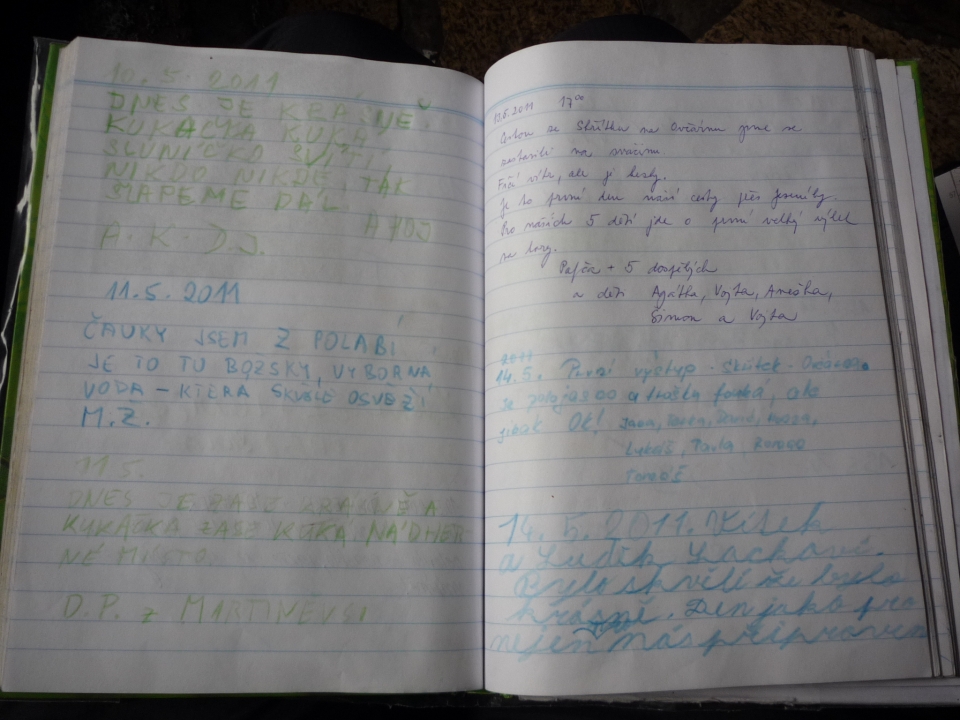 10.5.2011
DNES JE KRÁSNĚ
KUKAČKA KUKÁ
SLUNÍČKO SVÍTÍ
NIKDO NIKDE TAK
ŠLAPEME DÁL
AHOJ
A.K. D.J.
11.5.2011
ČAUKY JSEM Z POLABÍ
JE TO TU BOŽSKY, VÝBORNÁ
VODA – KTERÁ SKVĚLE OSVĚŽÍ
M.Z.
11.5.
DNES JE ZASE KRÁSNĚ A
KUKAČKA ZASE KUKÁ NÁDHER-
NÉ MÍSTO
D.P. z
13.5.2011 17⁰⁰
Cestou ze Skřítku na Ovčárnu jsme se
zastavili na svačinu.
Fičí vítr, ale je hezky.
Je to první den naší cesty přes Jeseníky.
Pro našich 5 dětí jde o první velký výlet
na hory.
+ 5 dospělých
a děti Agátka, Vojta, Anežka,
Šimon a Vojta
2011
14.5. První výstup - Skřítek - Ovčárna
Je polojasno a trošku fouká, ale
jinak OK! Jana,
Lukáš, Pavla,
Tomáš
14.5.2011. Vítek
a Luděk
Bylo skvělí že bylo
krásně. Den jako pro
nejen nás připraven